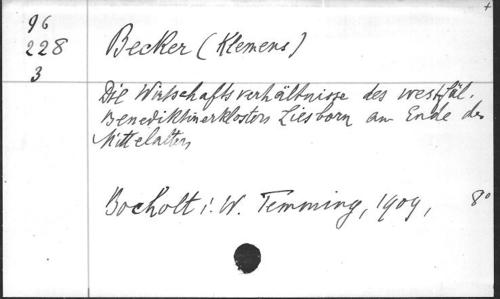 96
228
3
Becker (Klemens)
Die Wirtschaftsverhältnisse des westfäl.
Benediktinerklosters Liesborn am Ende des
Mittelalters
Bocholt i. W. Temming, 1909, 8°
+